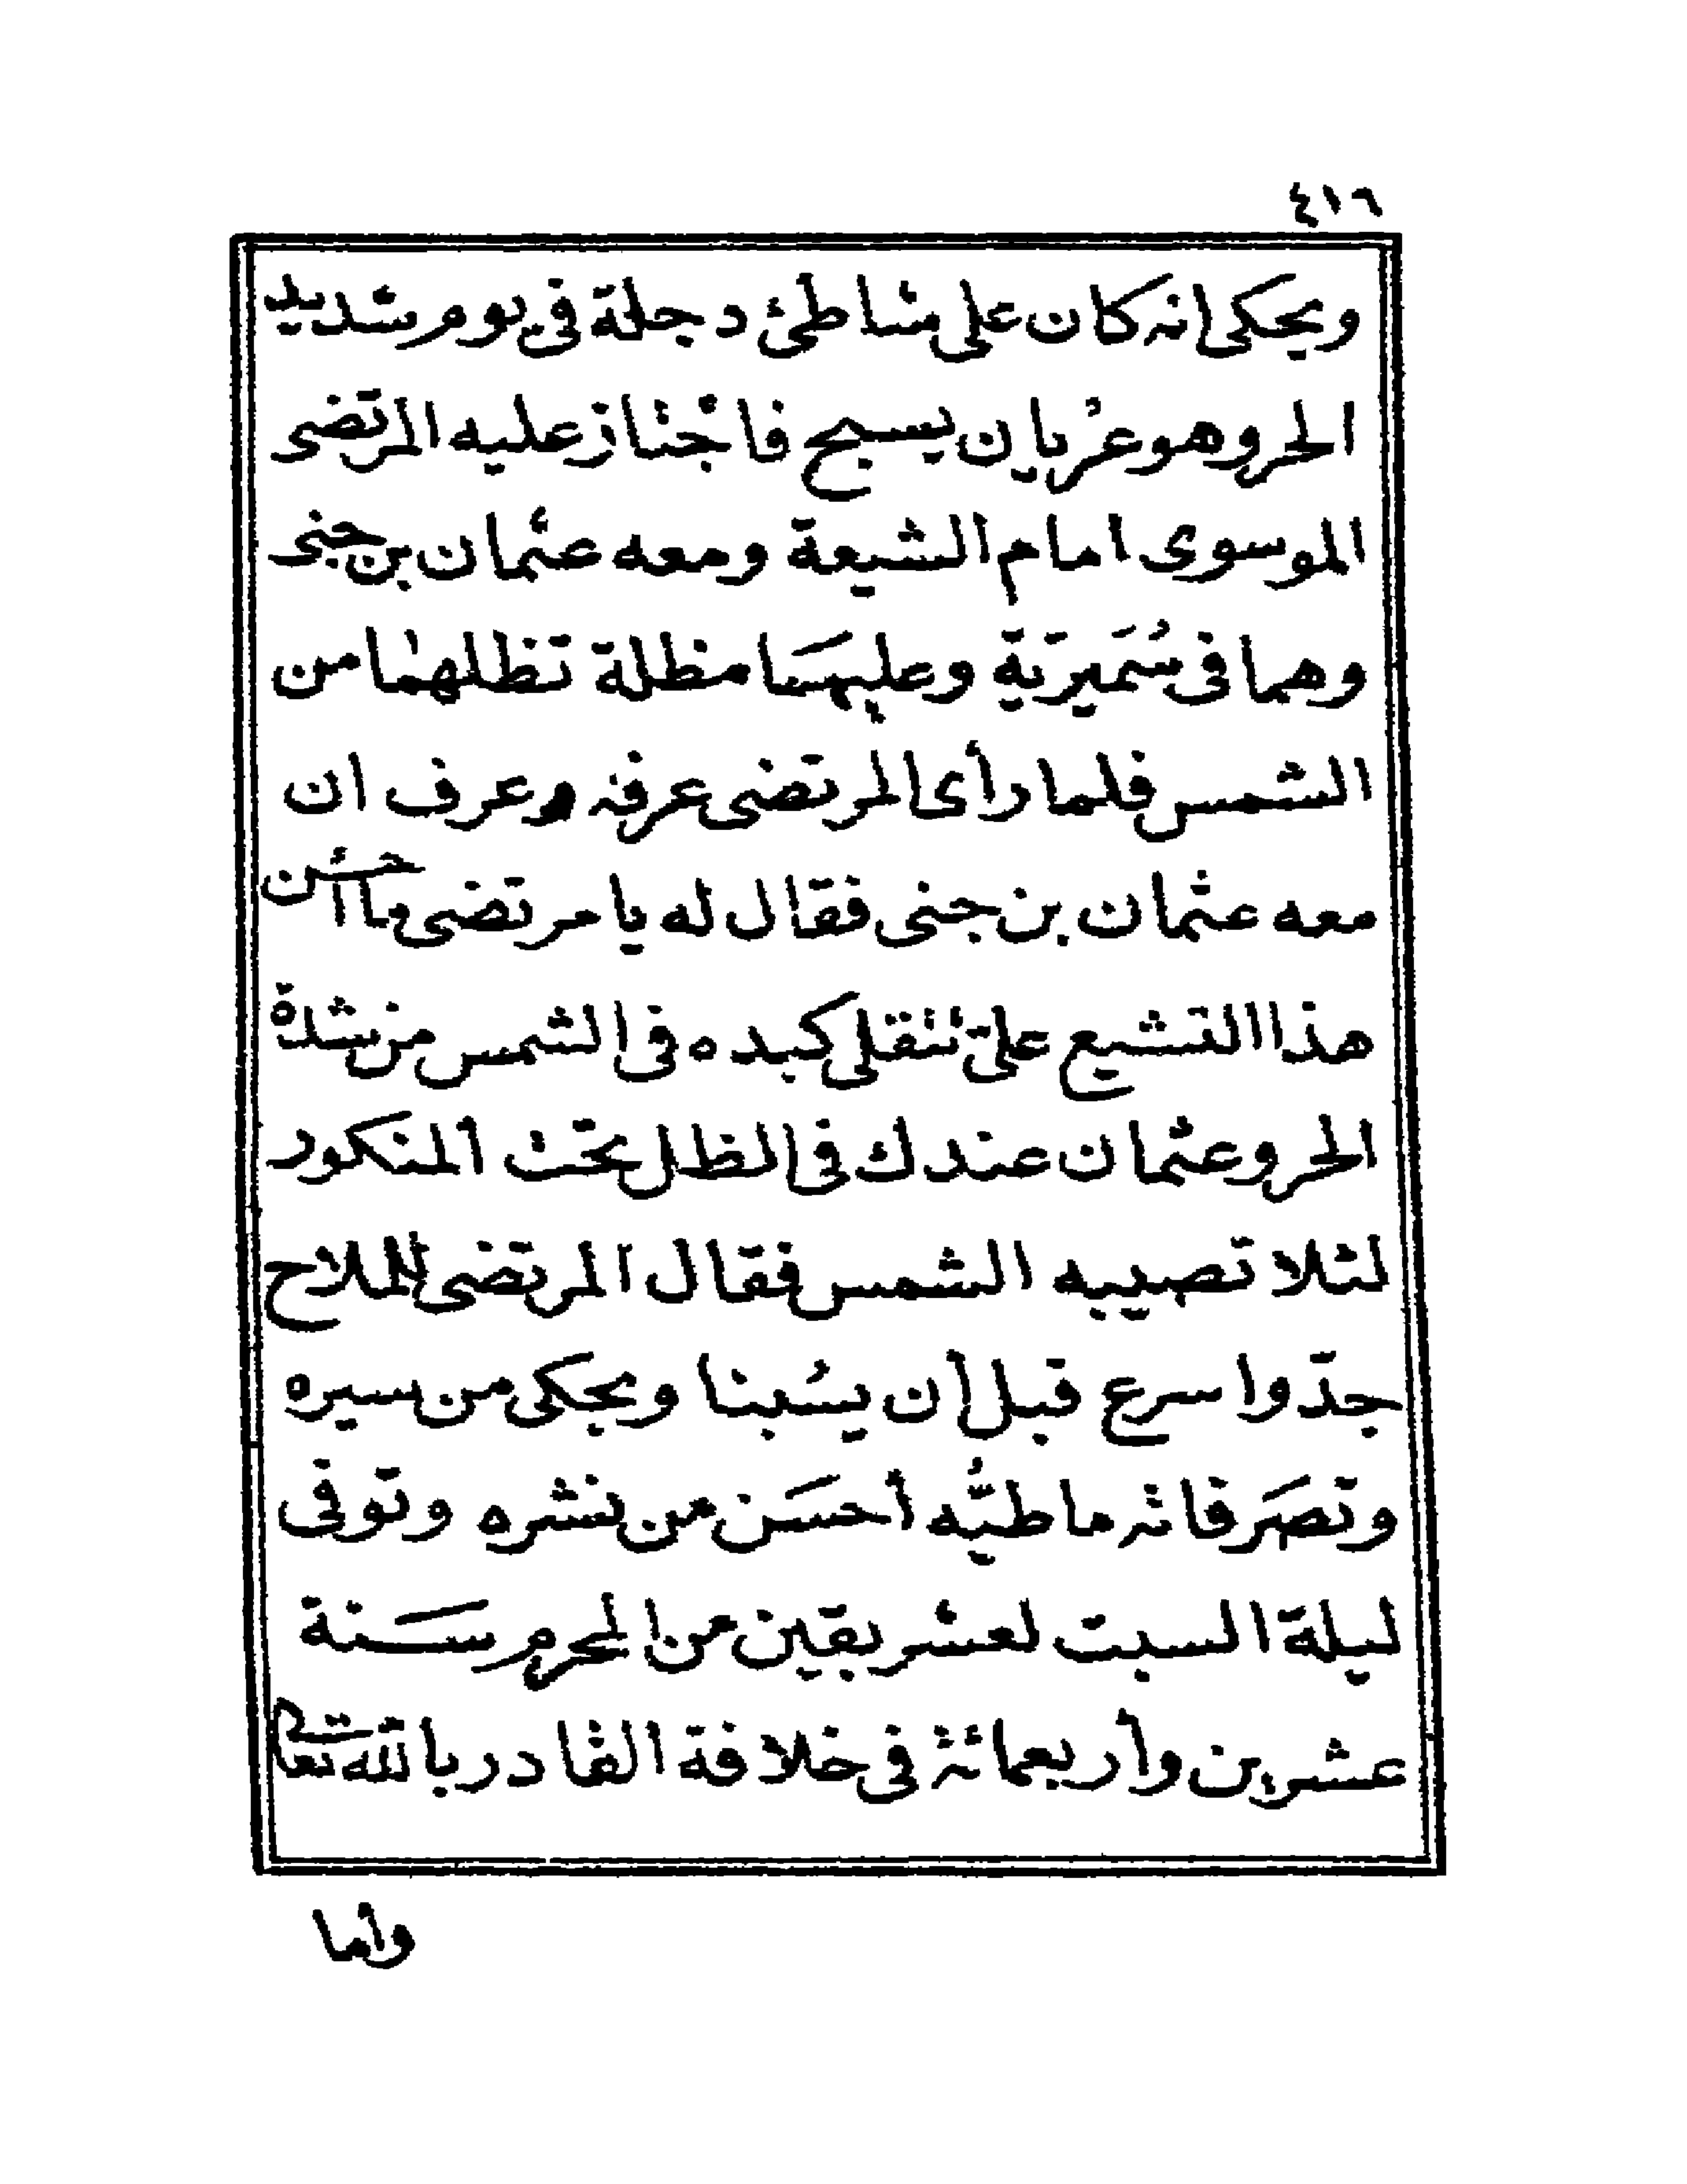 ٤١٦
ويحكى انه كان على شاطئ دجلة فى يوم شديد
الحر وهو عُريان يسبح فاجْتاز عليه المرتضى
الموسوى امام الشيعة ومعه عثمان بن جنى
وهما فى سُمَيريّة وعليهمَا مظلة تظلهما من
الشمس فلما رأى المرتضى عرفه وعرف ان
معه عثمان بن جنى فقال له يا مرتضى ما أحسن
هذا التشيع علىّ تتقلى كبده فى الشمس من شدة
الحر وعثمان عندك فى الظل تحت المنكور
لئلا تصيبه الشمس فقال المرتضى للملاح
جدّ واسرع قبل أن يسُبنا ويحكى من سيره
وتصَرفاته ما طيُّه أحسَن من نشره وتوفى
ليلة السبت لعشر بقين من المحرم سَنة
عشرين وأربعمائة فى خلافة القادر بالله تعالى
وأما